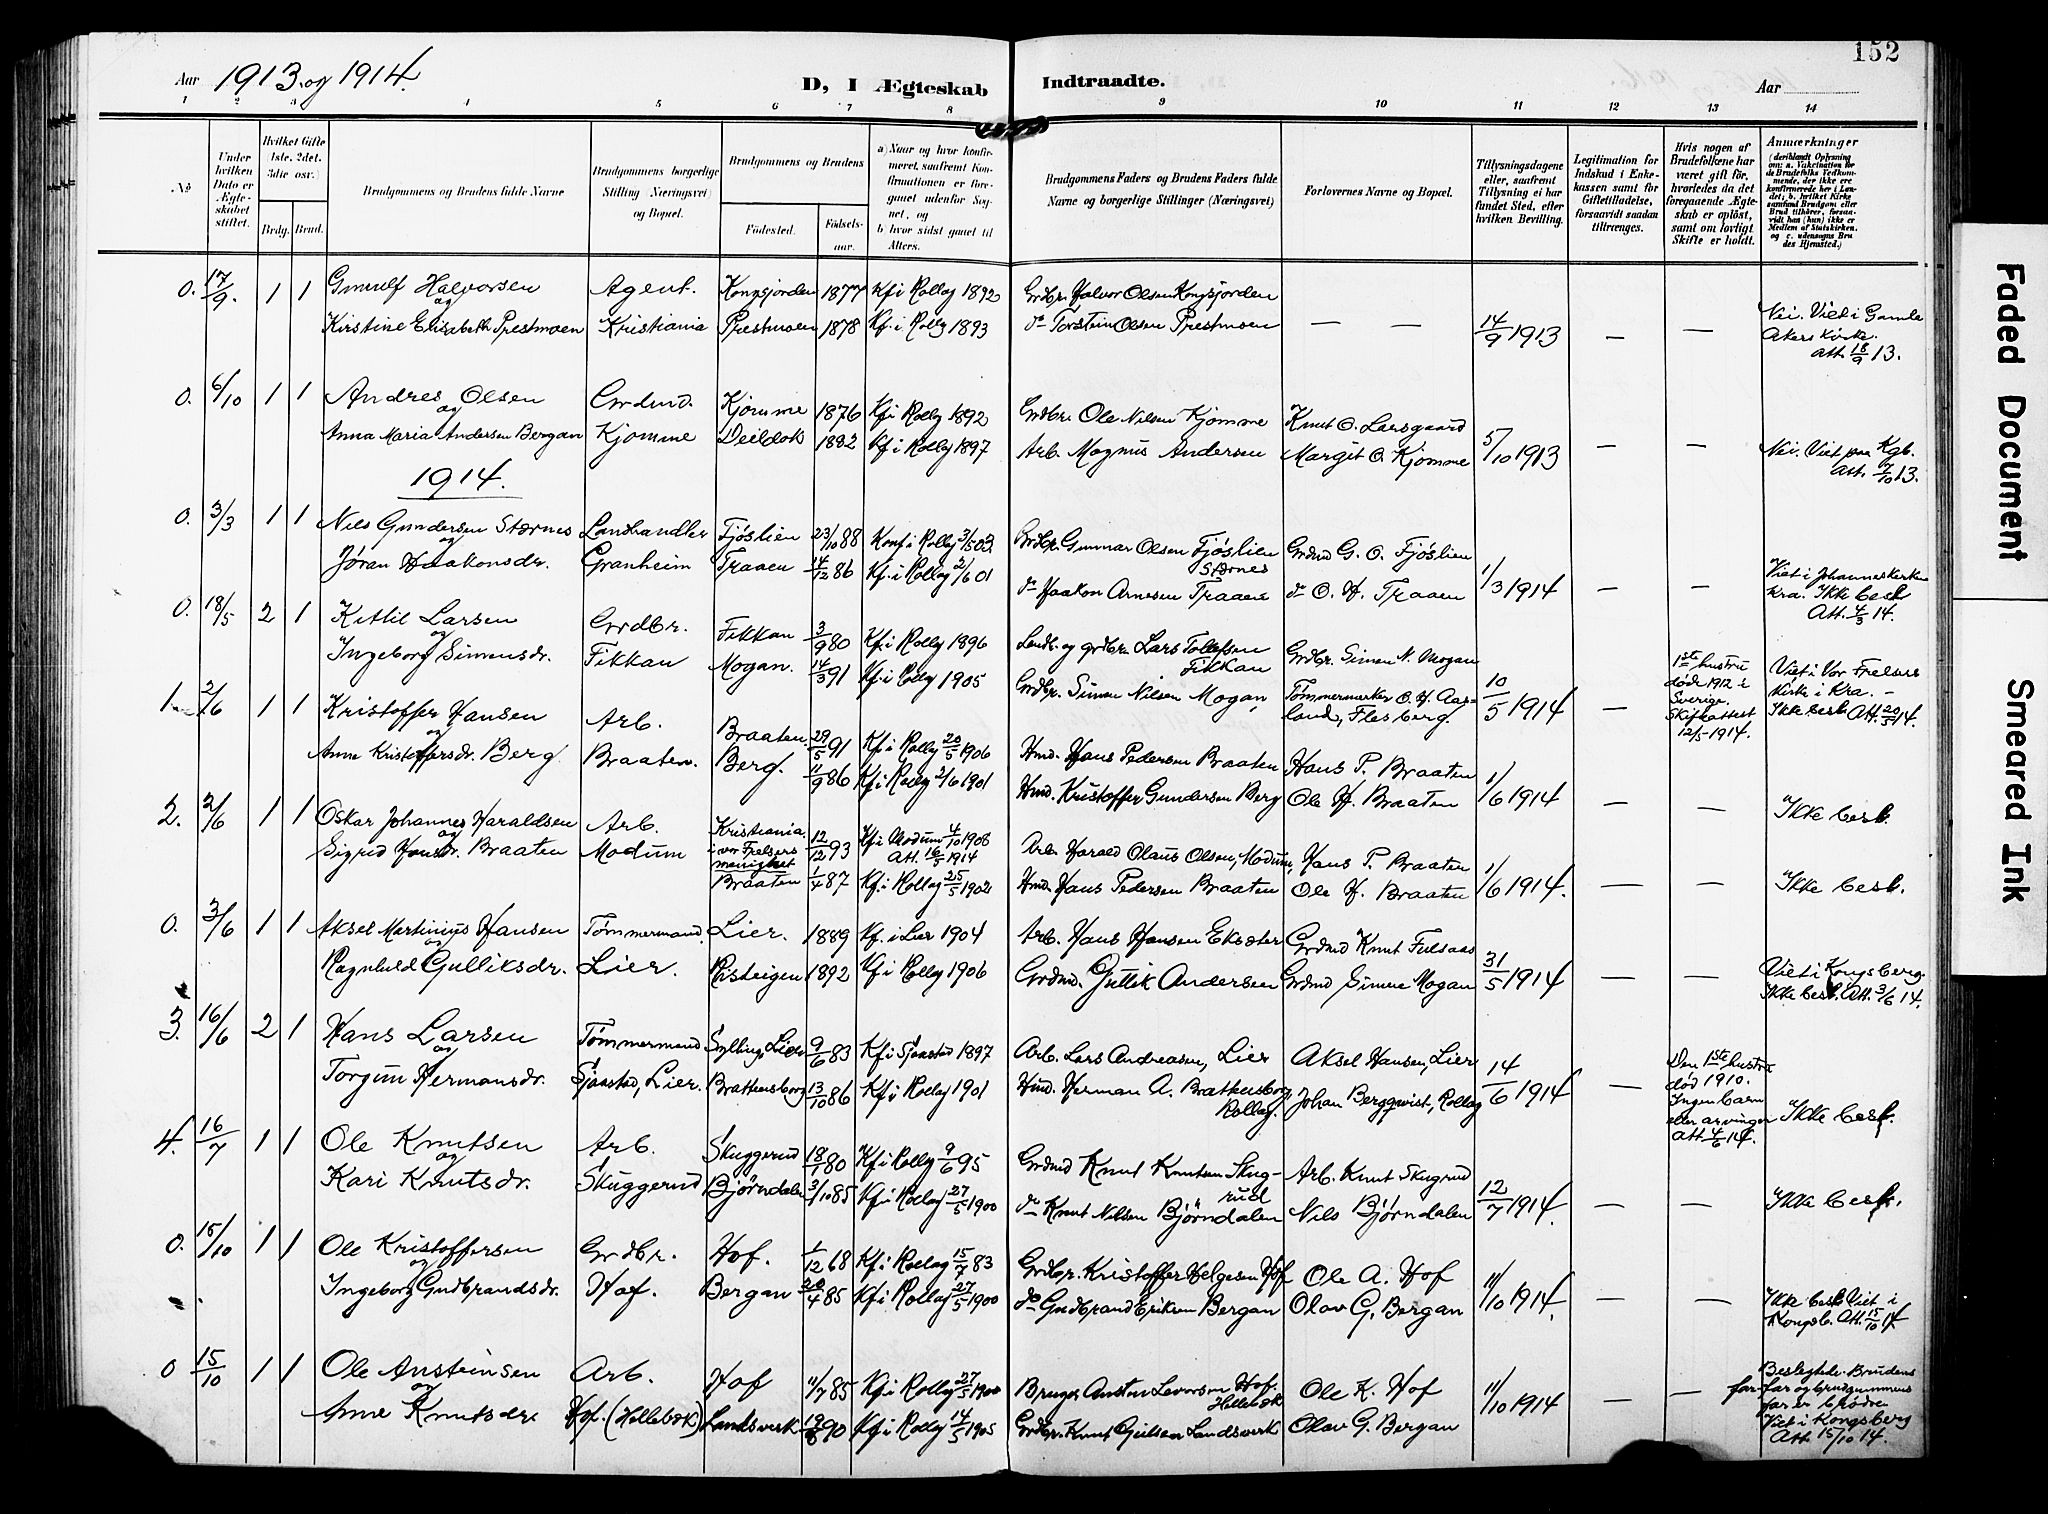 152
Aar 1913 og 1914.
D, I Ægteskab Indtraadte.
Aar
1 2 3 4 5 6 7 8 9 10 11 12 13 14
No
Under hvilken Dato er Ægteskabet stiftet.
Hvilket Gifte (1ste, 2det, 3die osv.)
Brdg. Brud.
Brudgommens og Brudens fulde Navne
Brudgommens borgerlige Stilling (Næringsvei) og Bopæl.
Brudgommens og Brudens
Fødested. Fødsels-aar.
a) Naar og hvor konfirmeret, saafremt Konfirmationen er foregaaet udenfor Sognet, og
b hvor sidst gaaet til Alters.
Brudgommens Faders og Brudens Faders fulde Navne og borgerlige Stillinger (Næringsvei)
Forlovernes Navne og Bopæl.
Tillysningsdagene eller, saafremt Tillysning ei har fundet Sted, efter hvilken Bevilling.
Legitimation for Indskud i Enkekassen samt for Giftetilladelse, forsaavidt saadan tiltrænges.
Hvis nogen af Brudefolkene har været gift før, hvorledes da det foregaaende Ægteskab er opløst, samt om lovligt Skifte er holdt.
Anmærkninger (deriblandt Oplysning om: a. Vakcination for de Brudefolks Vedkommende, der ikke ere konfirmerede her i Landet; b. hvilket Kirkesamfund Brudgom eller Brud tilhører, forsaavidt han (hun) ikke er Medlem af Statskirken, og c. udensogns Brudes Hjemsted.)
0. 17/9. 1 1 Gunulf Halvorsen Agent. Kongsjorden 1877 Kf i Rollag 1892 Grdbr. Halvor Olsen Kongsjorden
og
Kirstine Elisabeth Prestmoen Kristiania Prestmoen 1878 Kf. i Rollag 1893 do Torstein Olsen Prestmoen — — 14/9 1913 — — Nei. Viet i Gamle
Akers Kirke.
Att. 18/9 13.
0. 6/10 1 1 Andres Olsen Grdmd. Kjomme 1876 Kf i Rollag 1892 Grdbr. Ole Nilsen Kjomme Knut O. Larsgaard
og
Anna Maria Andersen Bergan Kjomme Deildok 1882 Kf i Rollag 1897 Arb. Magnus Andersen Margit O. Kjomme 5/10 1913 — — Nei. Viet paa Kgb.
Att. 7/10 13.
1914.
0. 3/3 1 1 Nils Gundersen Stærnes Landhandler Fjøslien 23/10 88 Konf i Rollag 3/5 03 Grdbr. Gunnar Olsen Fjøslien Grdmd G. O. Fjøslien
og Stærnes
Jøran Haakonsdr. Granheim Traaen 14/12 86 Kf. i Rollag 2/6 01 do Haakon Arnesen Traaen do O. H. Traaen 1/3 1914 — — Viet i Johanneskirken
Kra. Ikke besl
Att. 4/3 14.
0. 18/5 2 1 Kittil Larsen Grdbr. Fikkan 3/9 80 Kf i Rollag 1896 Landh. og grdbr. Lars Tollefsen
og Fikkan
Ingeborg Simensdr. Fikkan Mogan. 14/3 91 Kf i Rollag 1905 Grdbr. Simen Nilsen Mogan Grdbr. Simen N. Mogan
Tømmermerker O. H. Aas-
land, Flesberg. 10/5 1914 — 1ste hustru
døde 1912 i
Sverige.
Skifteattest
12/5-1914. Viet i Vor Frelsers
Kirke i Kra. -
Ikke besl. Att. 20/5 14.
1. 2/6 1 1 Kristoffer Hansen Arb. Braaten 29/5 91 Kf i Rollag 20/5 1906 Hmd. Hans Pedersen Braaten Hans P. Braaten
og
Anne Kristoffersdr. Berg. Braaten. Berg. 11/9 86 Kf i Rollag 2/6 1901 Hmd. Kristoffer Gundersen Berg Ole H. Braaten 1/6 1914 — — Ikke besl.
2. 2/6 1 1 Oskar Johannes Haraldsen Arb. Kristiania
i vor Frelsers
menighet 12/12 93 Kf i Modum 4/10 1908
Att. 16/5 1914 Arb. Harald Olaus Olsen, Modum, Hans P. Braaten
og
Sigrid Hansdr. Braaten Modum Braaten 1/4 87 Kf. i Rollag 25/5 1902 Hmd. Hans Pedersen Braaten Ole H. Braaten 1/6 1914. — — Ikke besl.
0. 3/6 1 1 Aksel Martinius Hansen Tømmermand, Lier. 1889 Kf. i Lier 1904 Arb. Hans Hansen Eksæter Grdmd Knut Fulsaas
og
Ragnhild Gulliksdr. Lier. Risteigen 1892 Kf i Rollag 1906 Grdmd. Gullik Andersen Grdmd Simen Mogan 31/5 1914 — — Viet i Kongsberg.
Ikke besl. Att. 3/6 14.
3. 16/6 2 1 Hans Larsen Tømmermand Sylling, Lier 9/6 83 Kf i Sjaastad 1897 Arb. Lars Andreasen, Lier Aksel Hansen, Lier
og
Torgun Hermansdr. Sjaastad, Lier. Brathensborg 13/10 86 Kf i Rollag 1901 Hmd. Herman A. Brathensborg
Rollag. Johan Bergqwist, Rollag 14/6 1914 — Den 1ste hustru
død 1910.
Ingen barn
eller arvinger
Att. 4/6 14. Ikke besl.
4. 16/7 1 1 Ole Knutsen Arb. Skuggerud 18/1 80 Kf i Rollag 9/6 95 Grdmd Knut Knutsen Skug-
rud Arb. Knut Skugrud
og
Kari Knutsdr. Skuggerud Bjørndalen 3/10 85 Kf i Rollag 27/5 1900 do Knut Nilsen Bjørndalen Nils Bjørndalen 12/7 1914. — — Ikke besl.
0. 15/10 1 1 Ole Kristoffersen Grdbr. Hof. 1/12 68 Kf i Rollag 15/7 83 Grdbr. Kristoffer Helgesen Hof Ole A. Hof
og
Ingeborg Gudbrandsdr. Hof. Bergan 20/4 85 Kf i Rollag 27/5 1900 do Gudbrand Eriksen Bergan Olav G. Bergan 11/10 1914. — — Ikke besl. Viet i
Kongsb. Att. 15/10 14
0 15/10 1 1 Ole Anstensen Arb. Hof 11/7 85 Kf i Rollag 27/5 1900 Bruger Ansten Levorsen Hof
Hellebæk Ole K. Hof
og
Anne Knutsdr. Hof. (Hellebæk) Landsverk 19/8 90 Kf i Rollag 14/5 1905 Grdbr. Knut Gulsen Landsverk Olav G. Bergan 11/10 1914 — — Beslegtede. Brudens
farfar og brudgommens
far er brødre
Viet i Kongsberg
Att. 15/10 14.
Faded Document
Smeared Ink